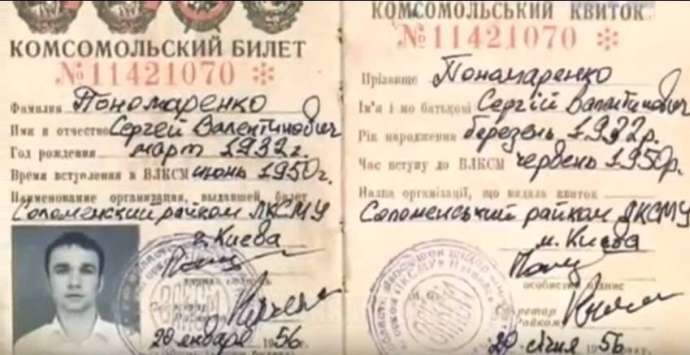 КОМСОМОЛЬСКИЙ БИЛЕТ
№ 11421070 *
Фамилия Пономаренко
Имя и отчество Сергей Валентинович
Год рождения март 1932 г.
Время вступления в ВЛКСМ июнь 1950 г.
Наименование организации, выдавшей билет
Соломенский райком ЛКСМУ
г. Киева
20 января 1956
КОМСОМОЛЬСЬКИЙ КВИТОК
№ 11421070 *
Прізвище Пономаренко
Ім'я і по батькові Сергій Валентинович
Рік народження березень 1932 р.
Час вступу до ВЛКСМ червень 1950 р.
Назва організації, що видала квиток
Соломенський райком ЛКСМУ
м. Києва
особистий підпис
Секретар
райкому
20 січня 1956